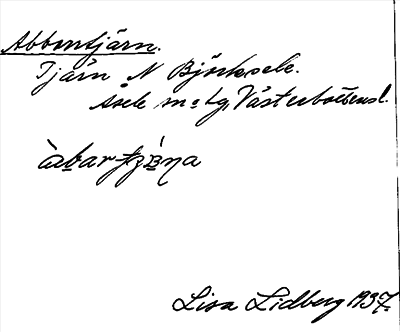 Abborrtjärn.
Tjärn N Björksele.
Åsele m o lg, Västerbottensl.
Lisa Lidberg 1937.